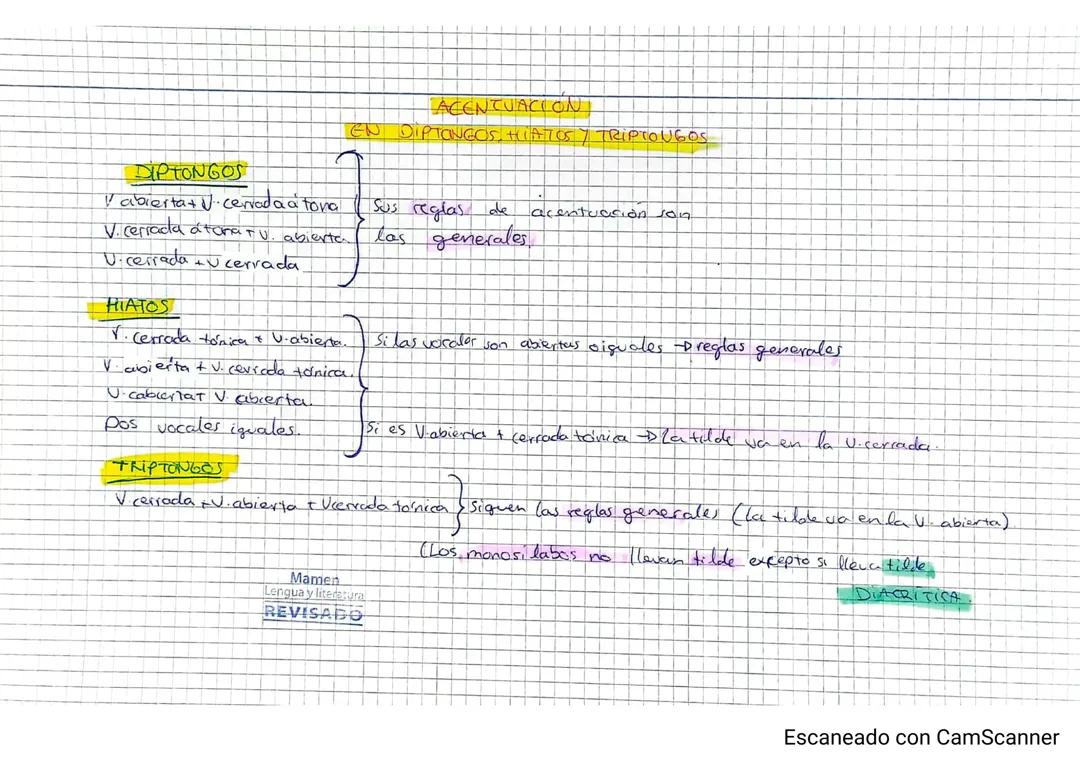 ACENTUACIÓN
EN DIPTONGOS, HIATOS Y TRIPTONGOS
DIPTONGOS
V abierta + V. cerrada átona
V. cerrada átona + V. abierta.
V. cerrada + V cerrada
Sus reglas de acentuación son
las generales.
HIATOS
V. cerrada tónica + V. abierta.
V. abierta + V. cerrada tónica.
V. abierta + V. abierta.
Dos vocales iguales.
Si las vocales son abiertas o iguales → reglas generales
Si es V. abierta + cerrada tónica → La tilde va en la V. cerrada.
TRIPTONGOS
V. cerrada + V. abierta + V cerrada tónica
Siguen las reglas generales (La tilde va en la V. abierta)
(Los monosílabos no llevan tilde excepto si lleva tilde
DIACRÍTICA.
Mamen
Lengua y literatura
REVISADO
Escaneado con CamScanner